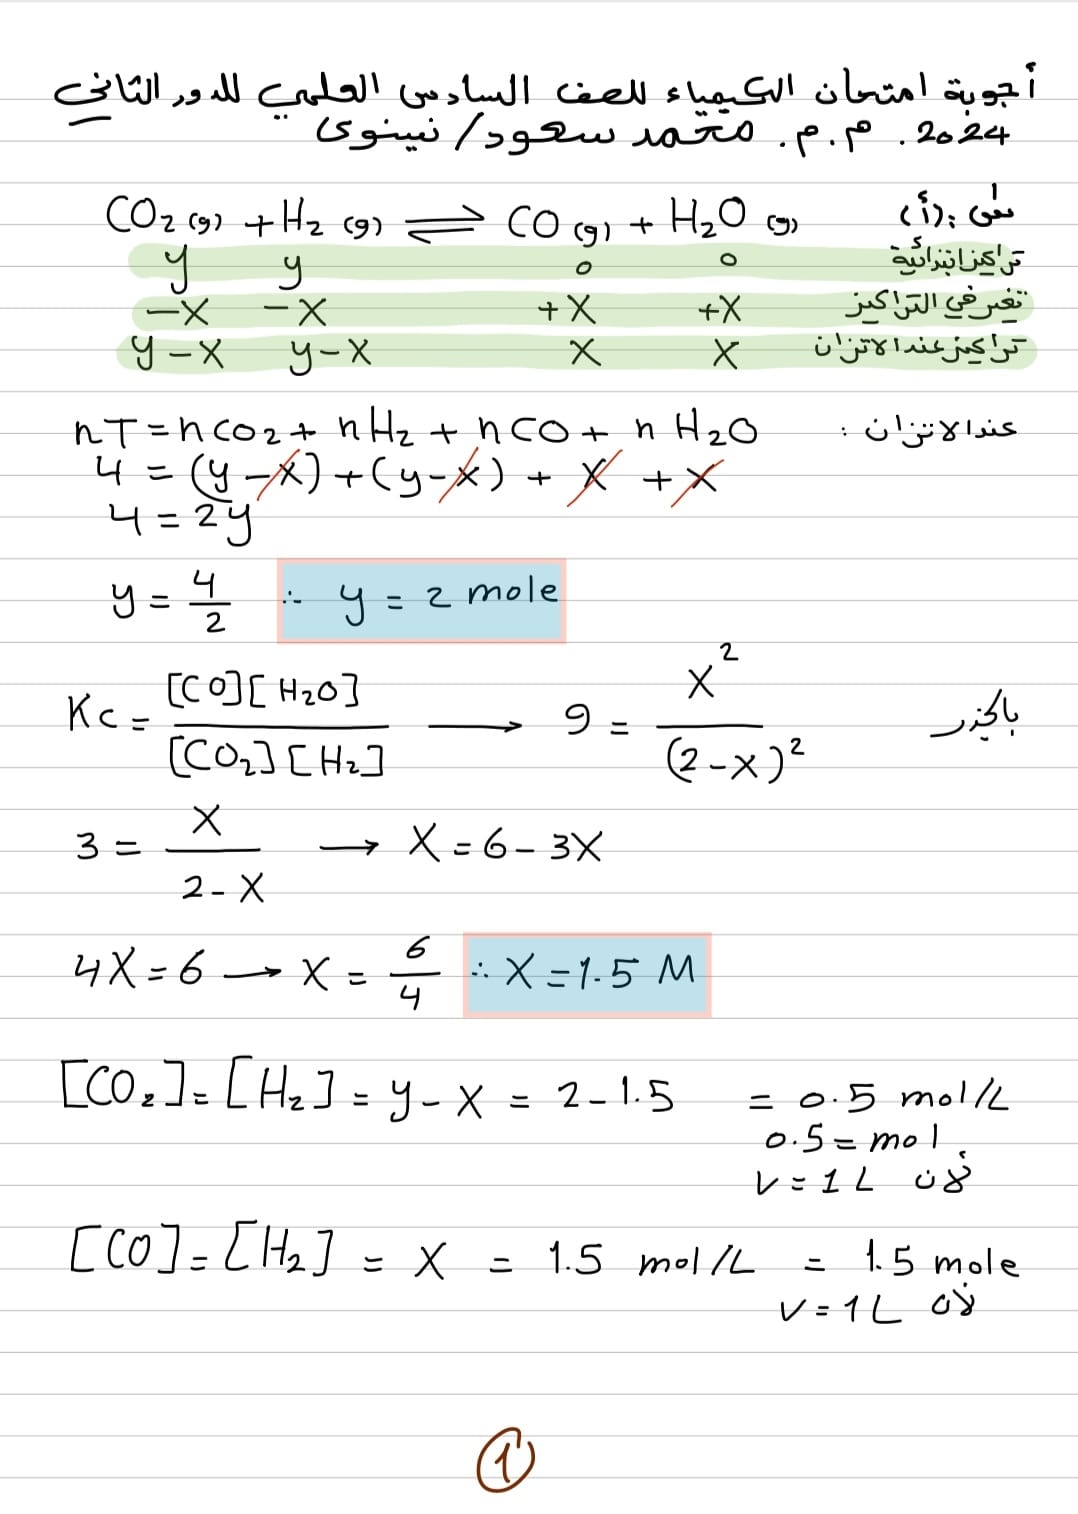 أجوبة امتحان الكيمياء للصف السادس العلمي للدور الثاني
2024 . م.م. محمد سعود / نينوى
س1: (أ)
CO2 (g) + H2 (g) ⇌ CO (g) + H2O (g)
y y 0 0 تراكيز ابتدائية
-X -X +X +X تغير في التراكيز
y-X y-X X X تراكيز عند الاتزان
nT = nCO2 + nH2 + nCO + nH2O عند الاتزان :
4 = (y-X) + (y-X) + X + X
4 = 2y
y = 4/2 ∴ y = 2 mole
Kc = [CO][H2O] / [CO2][H2] → 9 = X² / (2-X)² بالجذر
3 = X / 2-X → X = 6 - 3X
4X = 6 → X = 6/4 ∴ X = 1.5 M
[CO2] = [H2] = y - X = 2 - 1.5 = 0.5 mol/L
0.5 = mol
لأن V = 1 L
[CO] = [H2] = X = 1.5 mol/L = 1.5 mole
لأن V = 1 L
1